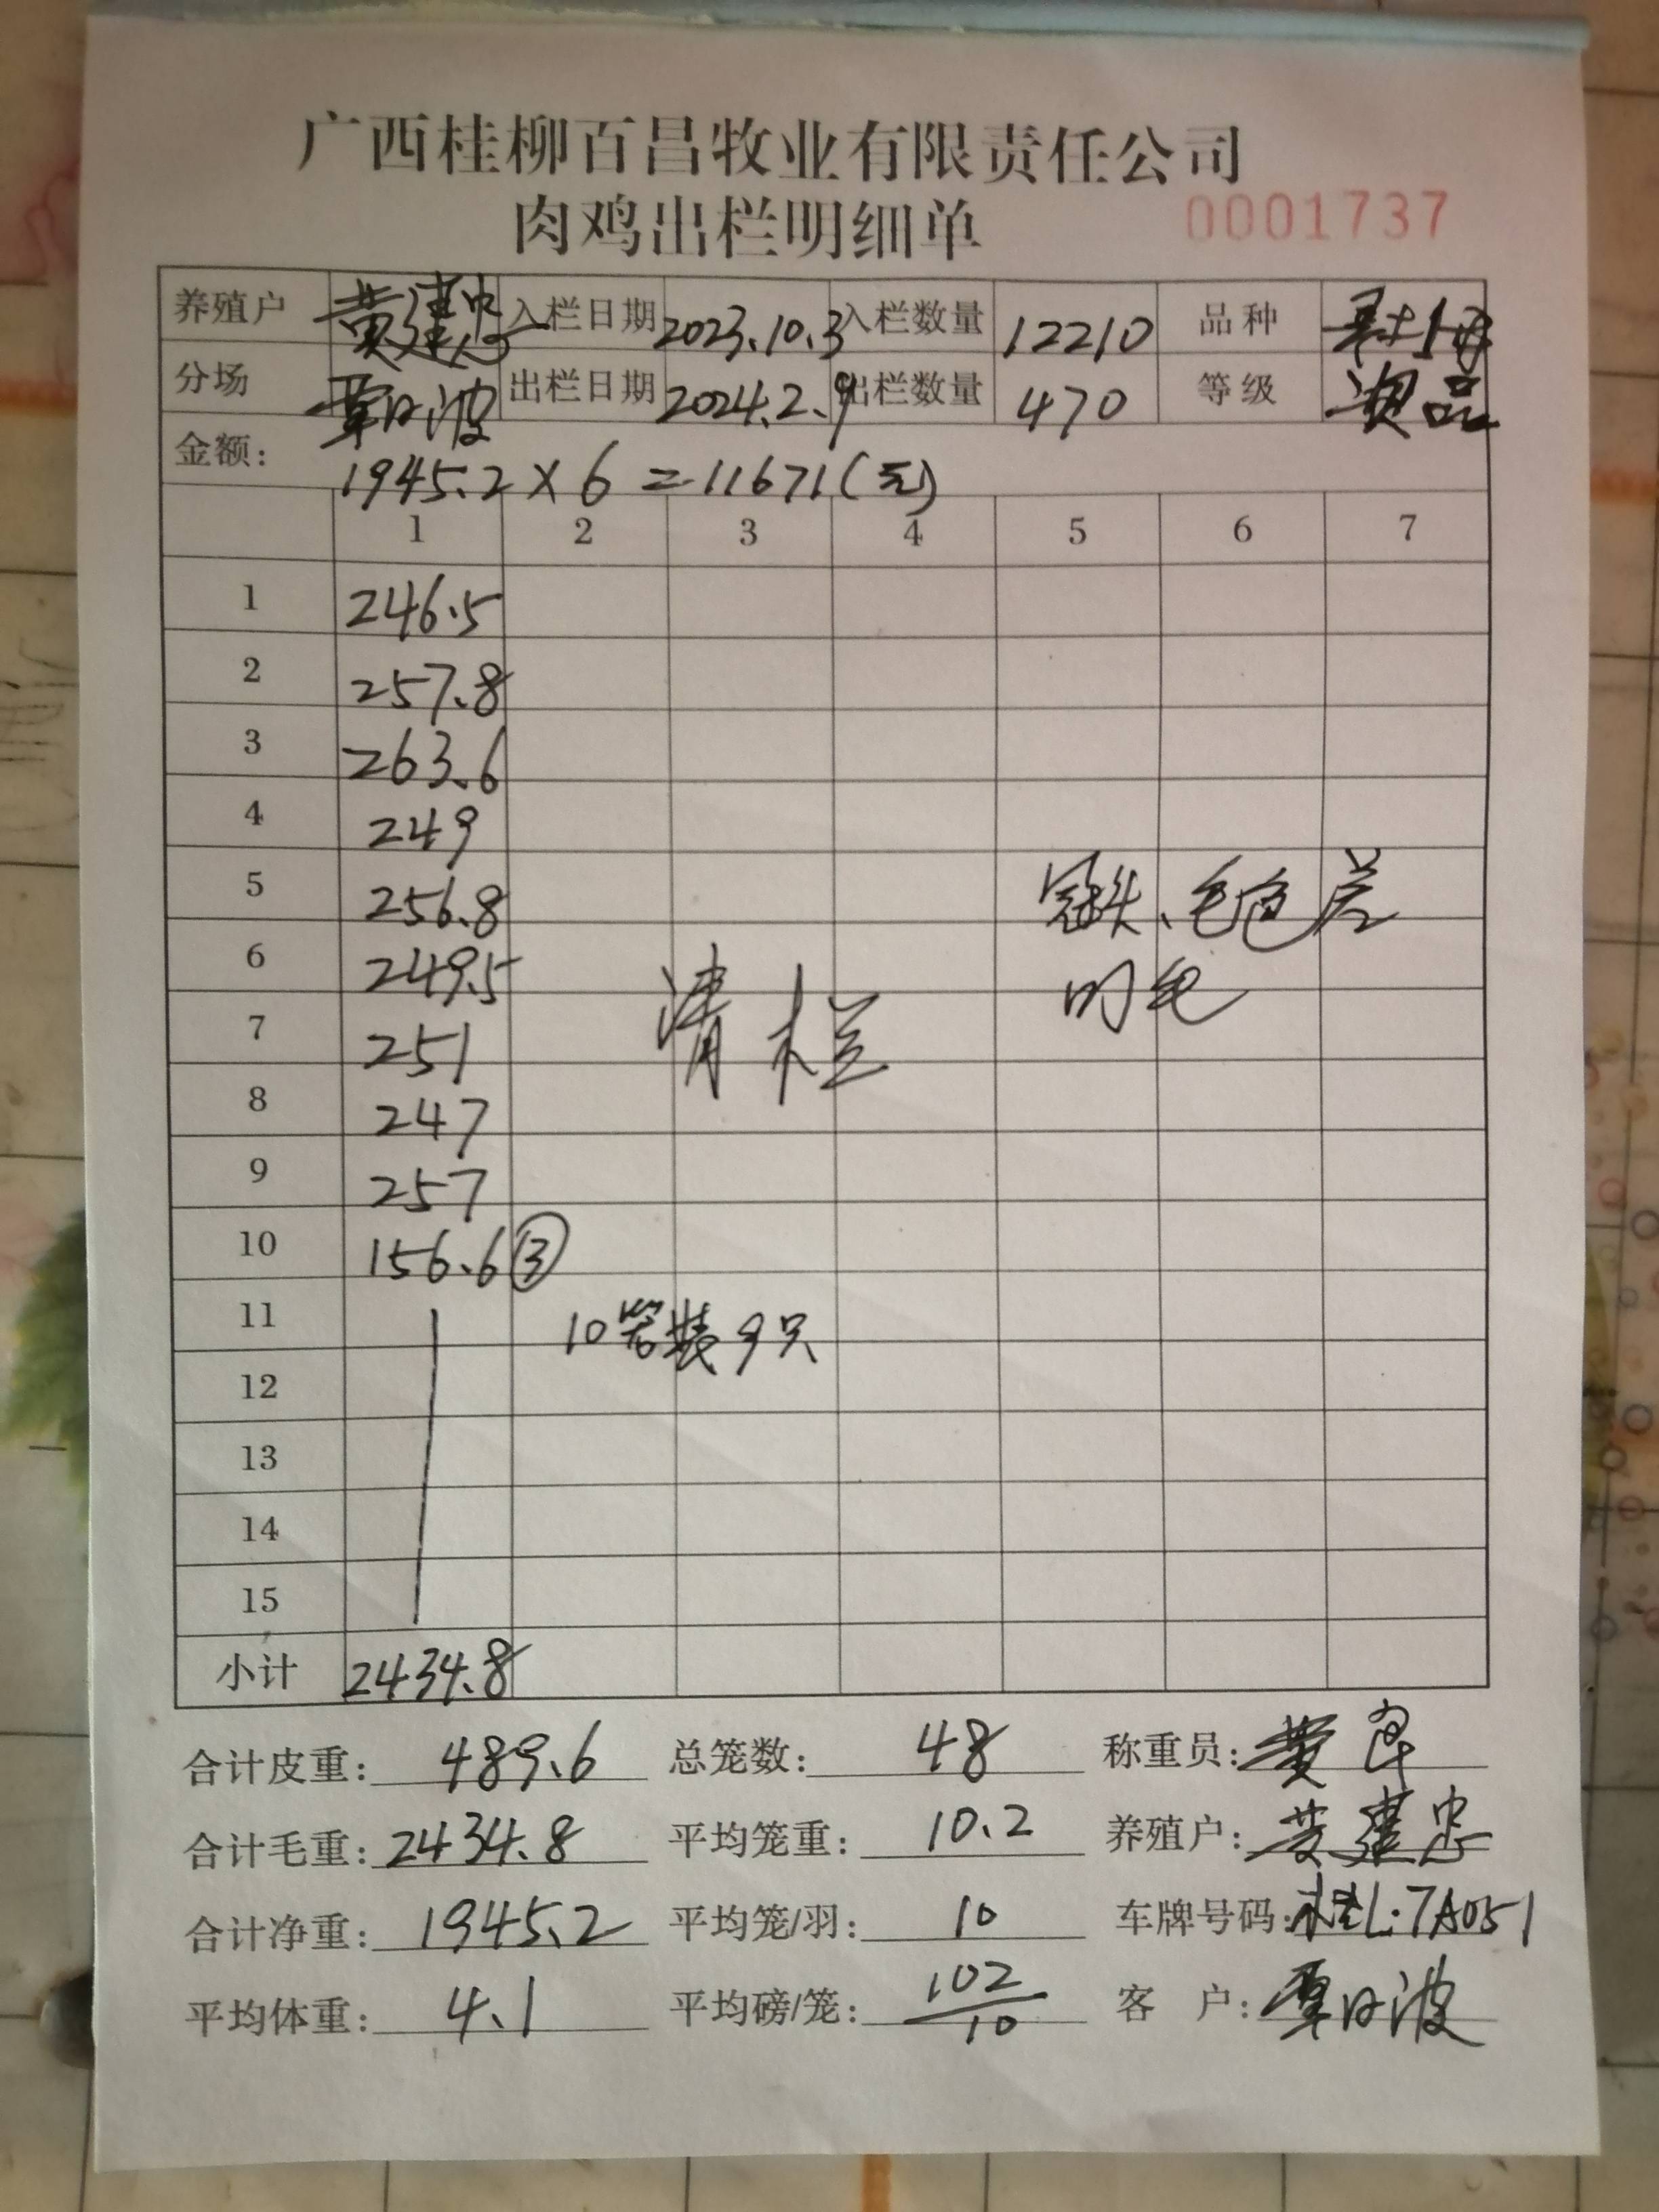 广西桂柳百昌牧业有限责任公司
肉鸡出栏明细单 0001737
养殖户 黄建忠 入栏日期 2023.10.3 入栏数量 12210 品种
分场 覃日波 出栏日期 2024.2.9 出栏数量 470 等级 次品
金额: 1945.2×6=11671(元)
1 2 3 4 5 6 7
1 246.5
2 257.8
3 263.6
4 249
5 256.8 冠头、毛色差
6 249.5 清栏 毛
7 251
8 247
9 257
10 156.6 ③
11 10笼装9只
12
13
14
15
小计 2434.8
合计皮重: 489.6 总笼数: 48 称重员: 黄
合计毛重: 2434.8 平均笼重: 10.2 养殖户: 黄建忠
合计净重: 1945.2 平均笼/羽: 10 车牌号码: 桂L·7A051
平均体重: 4.1 平均磅/笼: 102/10 客 户: 覃日波